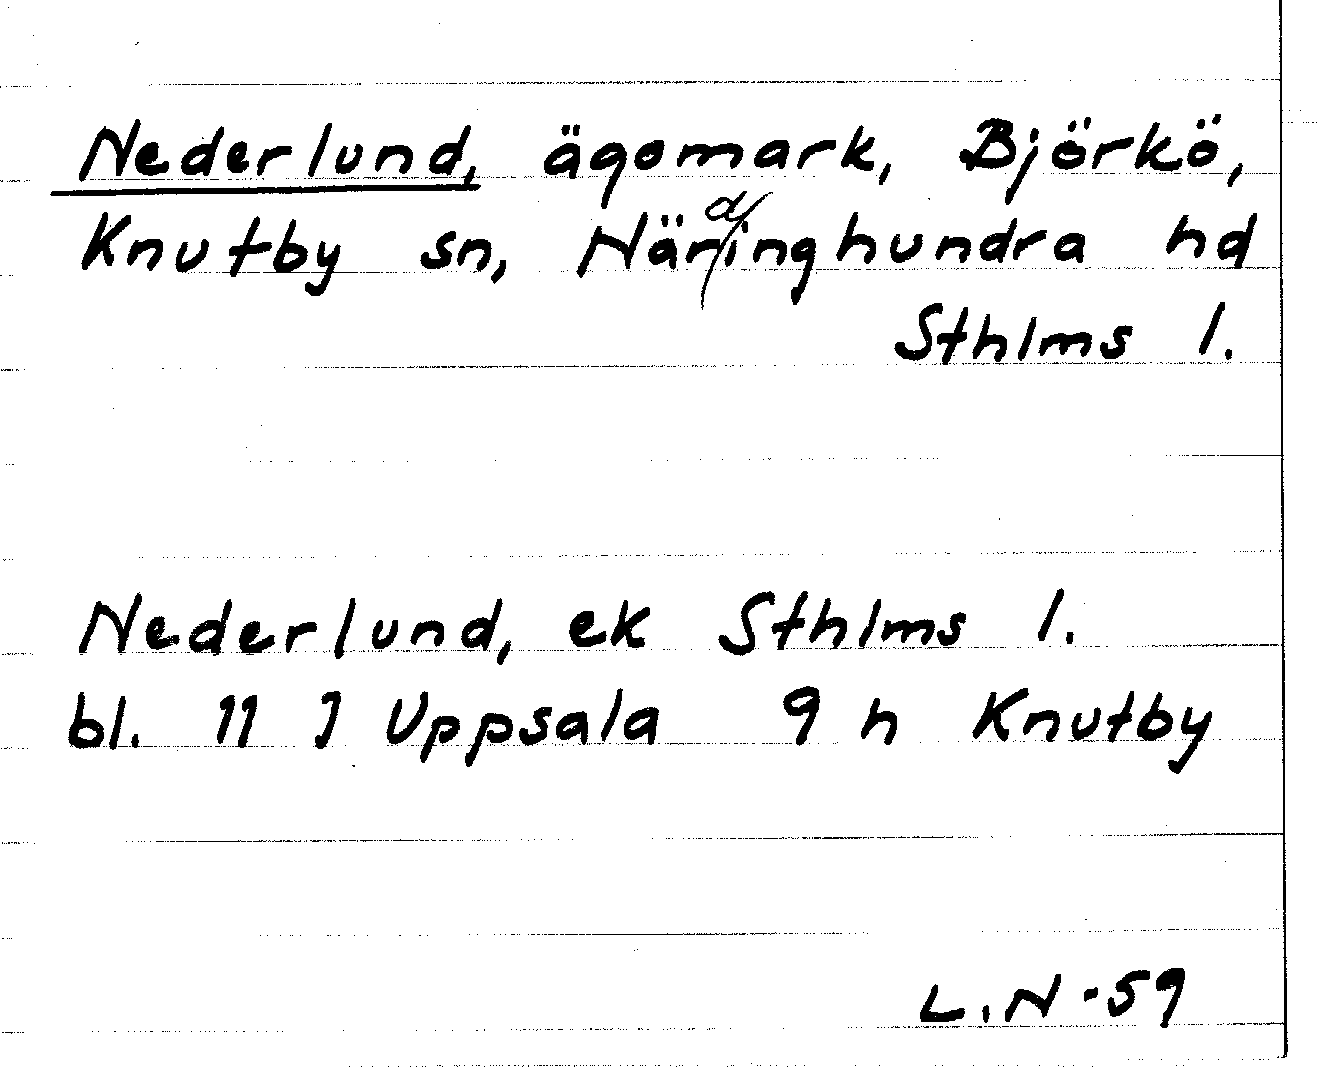 Nederlund, ägomark, Björkö,
Knutby sn, Närdinghundra hd
Sthlms l.
Nederlund, ek Sthlms l.
bl. 11 J Uppsala 9 h Knutby
L.N -59